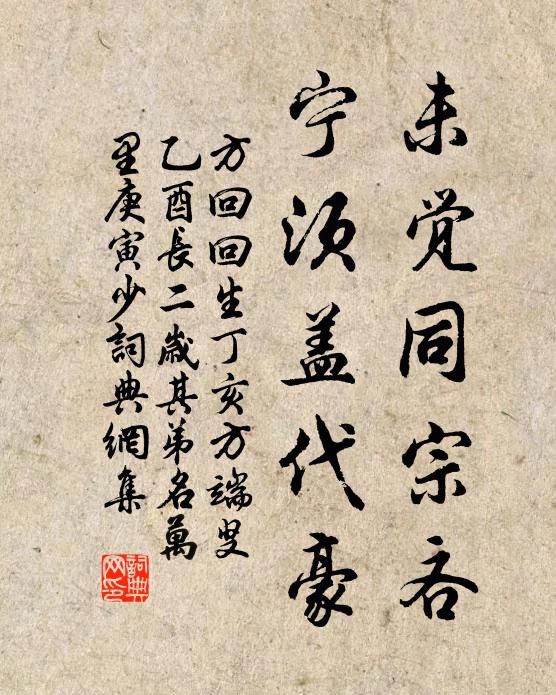 未觉同宗吝
宁须盖代豪
方回回生丁亥方端叟
乙酉長二歲其弟名萬
里庚寅少詞典網集
詞典
网印